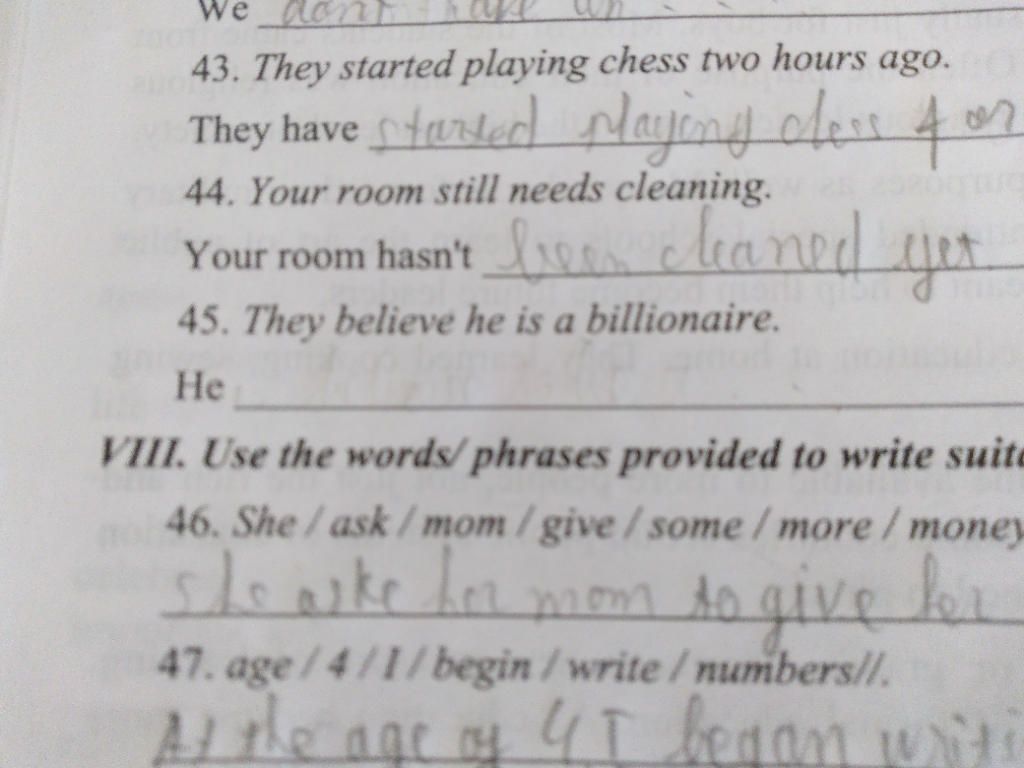 We don't have
43. They started playing chess two hours ago.
They have started playing chess
44. Your room still needs cleaning.
Your room hasn't been cleaned yet
45. They believe he is a billionaire.
He
VIII. Use the words/ phrases provided to write
46. She / ask / mom / give / some / more / money
She asks her mom to give her
47. age / 4 / I / begin / write / numbers//.
At the age of 4 I began